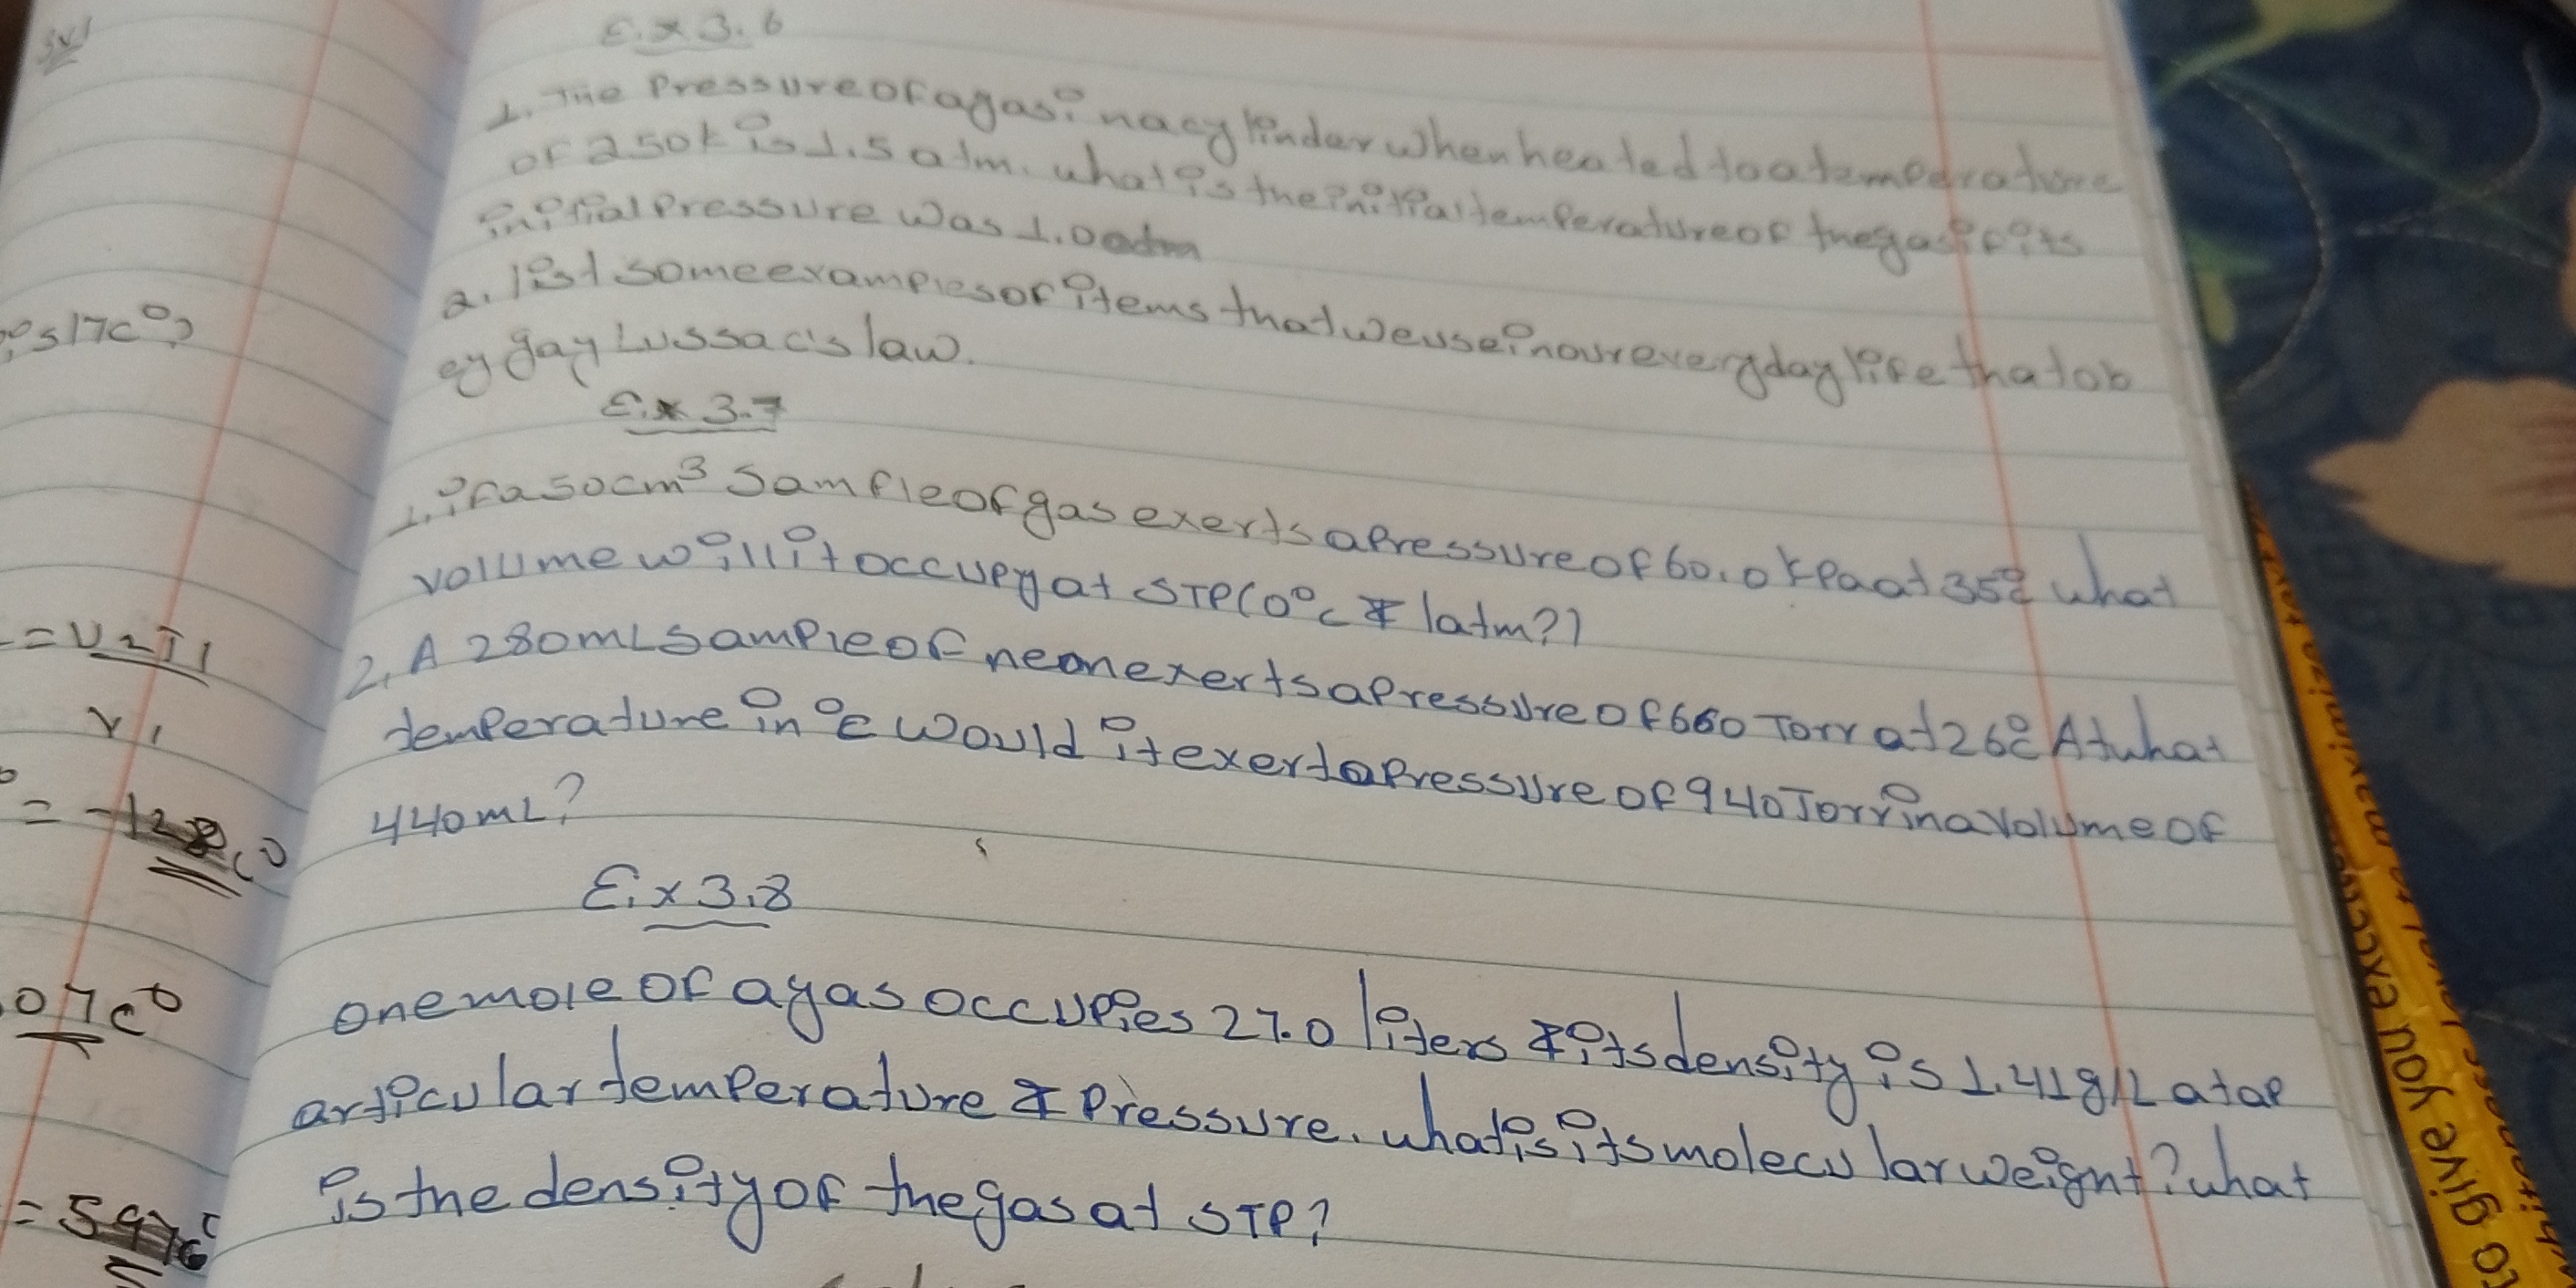 E.x 3.6
1. The Pressure of a gas in a cylinder when heated to a temperature
of 250k is 1.5 atm. what is the initial temperature of the gas if its
initial Pressure was 1.0 atm
2. list some examples of items that we use in our everyday life that ob
ey gay Lussac's law.
E.x 3.7
1. if a 50cm³ Sample of gas exerts a Pressure of 60.0 kPa at 35°c what
volume will it occupy at STP (0°c & 1atm?)
2. A 280mL sample of neon exerts a Pressure of 660 Torr at 26°c At what
temperature in °c would it exert a Pressure of 940 Torr in a volume of
440mL?
E.x 3.8
one mole of a gas occupies 27.0 liters & its density is 1.41g/L at a p
articular temperature & Pressure. what is its molecular weight? what
is the density of the gas at STP?
is 17c°?
= V2T1
V1
= -128c°
07c°
= 597c°
to give you